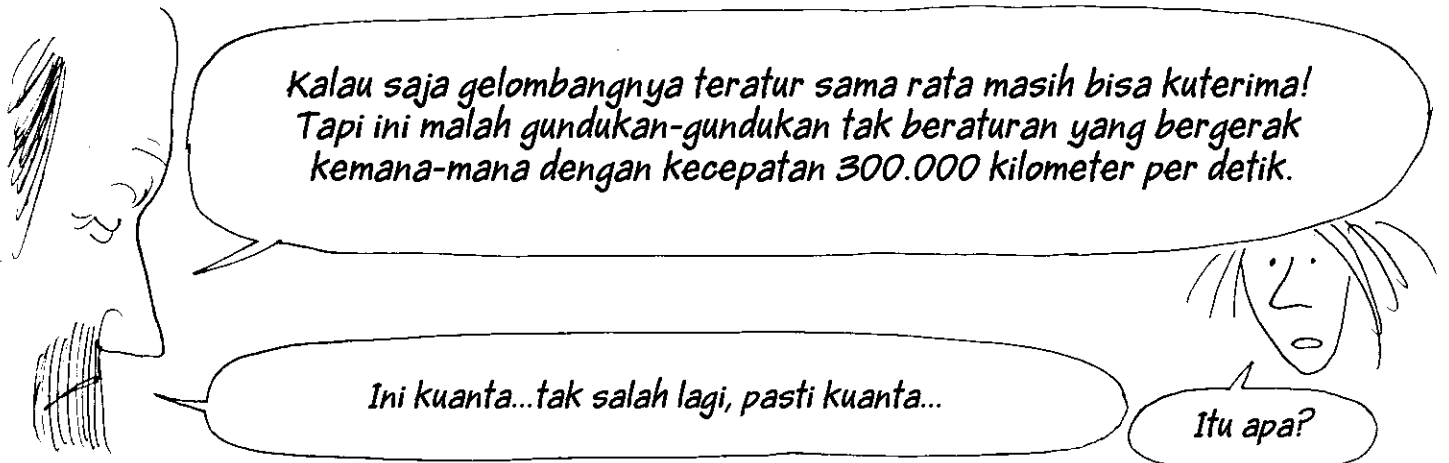 Kalau saja gelombangnya teratur sama rata masih bisa kuterima!
Tapi ini malah gundukan-gundukan tak beraturan yang bergerak
kemana-mana dengan kecepatan 300.000 kilometer per detik.
Ini kuanta...tak salah lagi, pasti kuanta...
Itu apa?